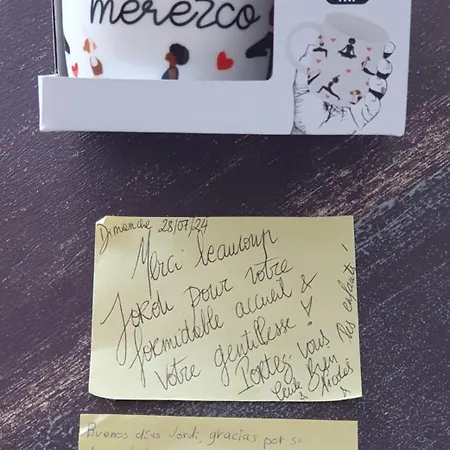 merezco
Dimanche 28/07/24
Merci beaucoup
Jordi pour votre
formidable accueil &
votre gentillesse !
Portez vous
bien
Nicolas
&
Buenos días Jordi, gracias por su